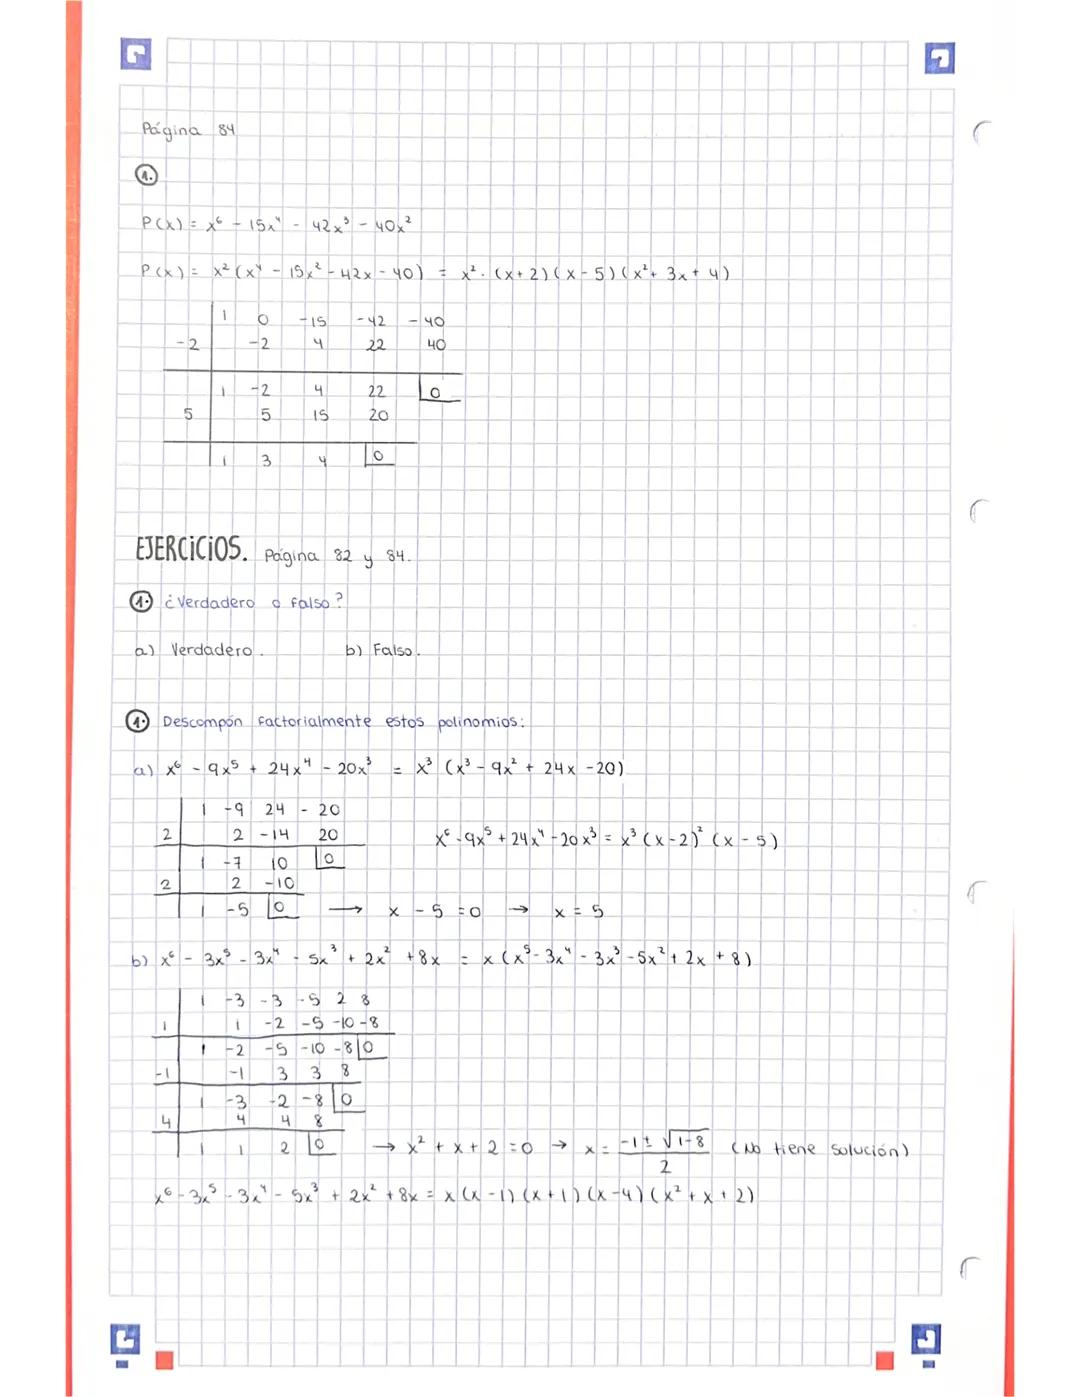 Página 84
1.
P(x) = x⁶ - 15x⁴ - 42x³ - 40x²
P(x) = x² (x⁴ - 15x² - 42x - 40) = x² · (x+2)(x-5)(x² + 3x + 4)
1 0 -15 -42 -40
-2 -2 4 22 40
1 -2 4 22 0
5 5 15 20
1 3 4 0
EJERCICIOS. Página 82 y 84.
1. ¿Verdadero o falso?
a) Verdadero. b) Falso.
1. Descompón factorialmente estos polinomios:
a) x⁶ - 9x⁵ + 24x⁴ - 20x³ = x³ (x³ - 9x² + 24x - 20)
1 -9 24 -20
2 2 -14 20 x⁶ - 9x⁵ + 24x⁴ - 20x³ = x³ (x-2)² (x-5)
1 -7 10 0
2 2 -10
1 -5 0 → x - 5 = 0 → x = 5
b) x⁶ - 3x⁵ - 3x⁴ - 5x³ + 2x² + 8x = x (x⁵ - 3x⁴ - 3x³ - 5x² + 2x + 8)
1 -3 -3 -5 2 8
1 1 -2 -5 -10 -8
1 -2 -5 -10 -8 0
-1 -1 3 3 8
1 -3 -2 -8 0
4 4 4 8
1 1 2 0 → x² + x + 2 = 0 → x = (-1 ± √1-8)/2 (No tiene solución)
x⁶ - 3x⁵ - 3x⁴ - 5x³ + 2x² + 8x = x (x-1)(x+1)(x-4)(x² + x + 2)